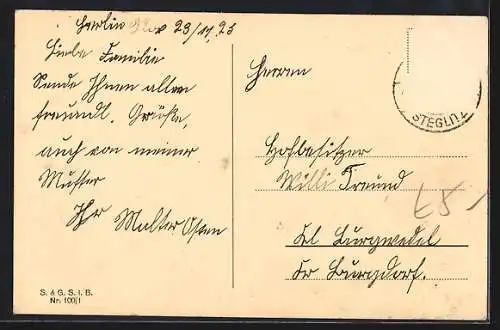 Berlin 29/11.25
Liebe Familie
Sende Ihnen allen
freundl. Grüße,
auch von meiner
Mutter
Ihr Walter Osten
Herren
Hofbesitzer
Willi Freund
Kl Burgwedel
Kr Burgdorf.
STEGLITZ
65-
S. & G. S. i. B.
Nr. 100/1